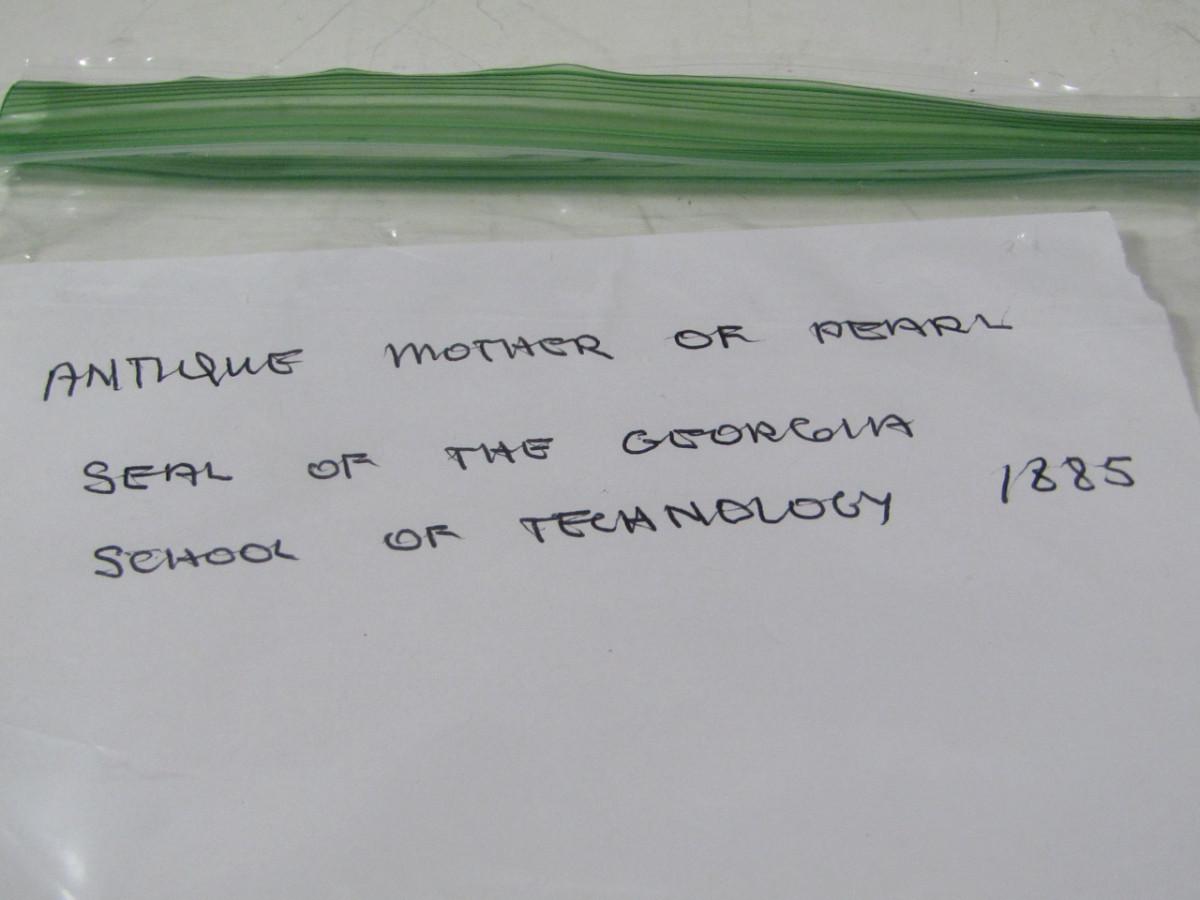 ANTIQUE MOTHER OF PEARL
SEAL OF THE GEORGIA
SCHOOL OF TECHNOLOGY 1885